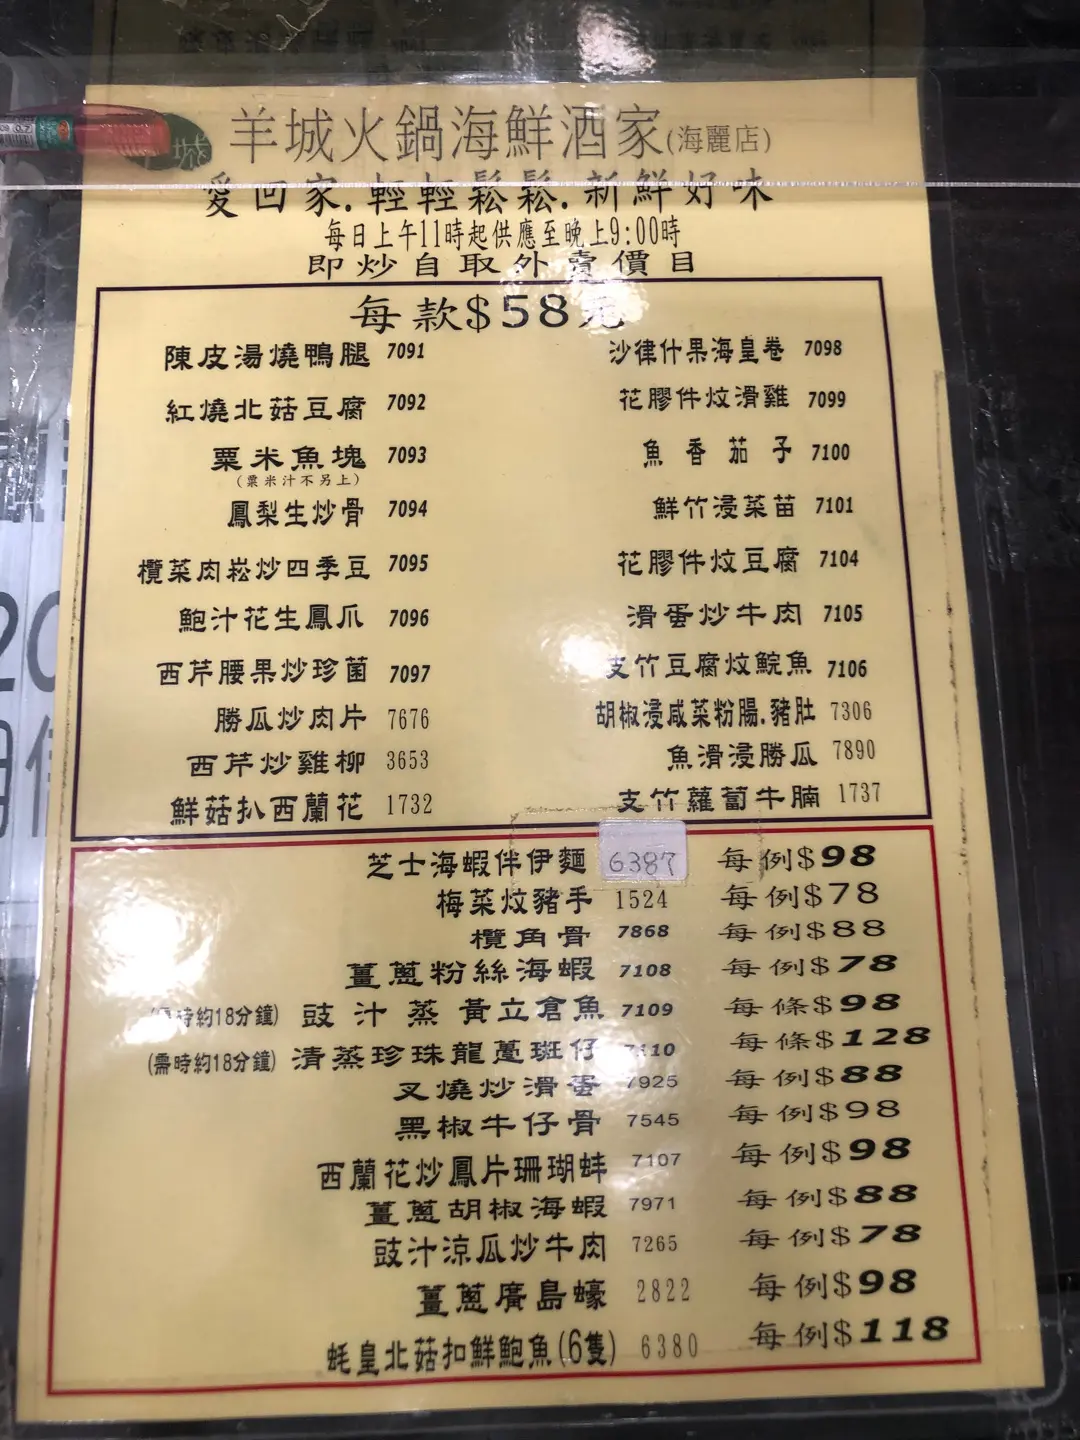 羊城火鍋海鮮酒家(海麗店)
愛回家.輕輕鬆鬆.新鮮好味
每日上午11時起供應至晚上9:00時
即炒自取外賣價目
每款$58元
陳皮湯燒鴨腿 7091
沙律什果海皇卷 7098
紅燒北菇豆腐 7092
花膠件炆滑雞 7099
粟米魚塊 7093
(粟米汁不另上)
魚香茄子 7100
鳳梨生炒骨 7094
鮮竹浸菜苗 7101
欖菜肉崧炒四季豆 7095
花膠件炆豆腐 7104
鮑汁花生鳳爪 7096
滑蛋炒牛肉 7105
西芹腰果炒珍菌 7097
支竹豆腐炆鯇魚 7106
勝瓜炒肉片 7676
胡椒浸咸菜粉腸.豬肚 7306
西芹炒雞柳 3653
魚滑浸勝瓜 7890
鮮菇扒西蘭花 1732
支竹蘿蔔牛腩 1737
芝士海蝦伴伊麵 6387 每例$98
梅菜炆豬手 1524 每例$78
欖角骨 7868 每例$88
薑蔥粉絲海蝦 7108 每例$78
(需時約18分鐘) 豉汁蒸黃立倉魚 7109 每條$98
(需時約18分鐘) 清蒸珍珠龍躉斑仔 7110 每條$128
叉燒炒滑蛋 7925 每例$88
黑椒牛仔骨 7545 每例$98
西蘭花炒鳳片珊瑚蚌 7107 每例$98
薑蔥胡椒海蝦 7971 每例$88
豉汁涼瓜炒牛肉 7265 每例$78
薑蔥廣島蠔 2822 每例$98
蚝皇北菇扣鮮鮑魚(6隻) 6380 每例$118